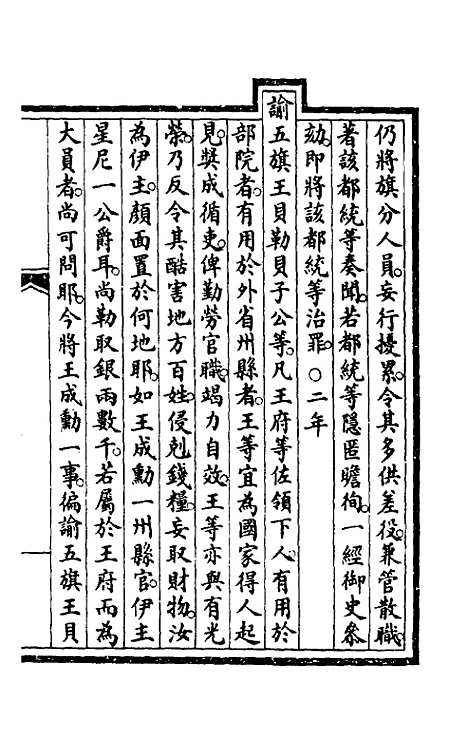 仍將旗分人員。妄行擾累。令其多供差役。兼管散職。
著該都統等奏聞。若都統等隱匿瞻徇。一經御史叅
劾。即將該都統等治罪。○二年
諭五旗王貝勒貝子公等。凡王府等佐領下人。有用於
部院者。有用於外省州縣者。王等宜為國家得人起
見。獎成循吏。俾勤勞官職。竭力自效。王等亦與有光
榮。乃反令其酷害地方百姓。侵剋錢糧。妄取財物。汝
為伊主。顏面置於何地耶。如王成勳一州縣官。伊主
星尼一公爵耳。尚勒取銀兩數千。若屬於王府而為
大員者。尚可問耶。今將王成勳一事。徧諭五旗王貝